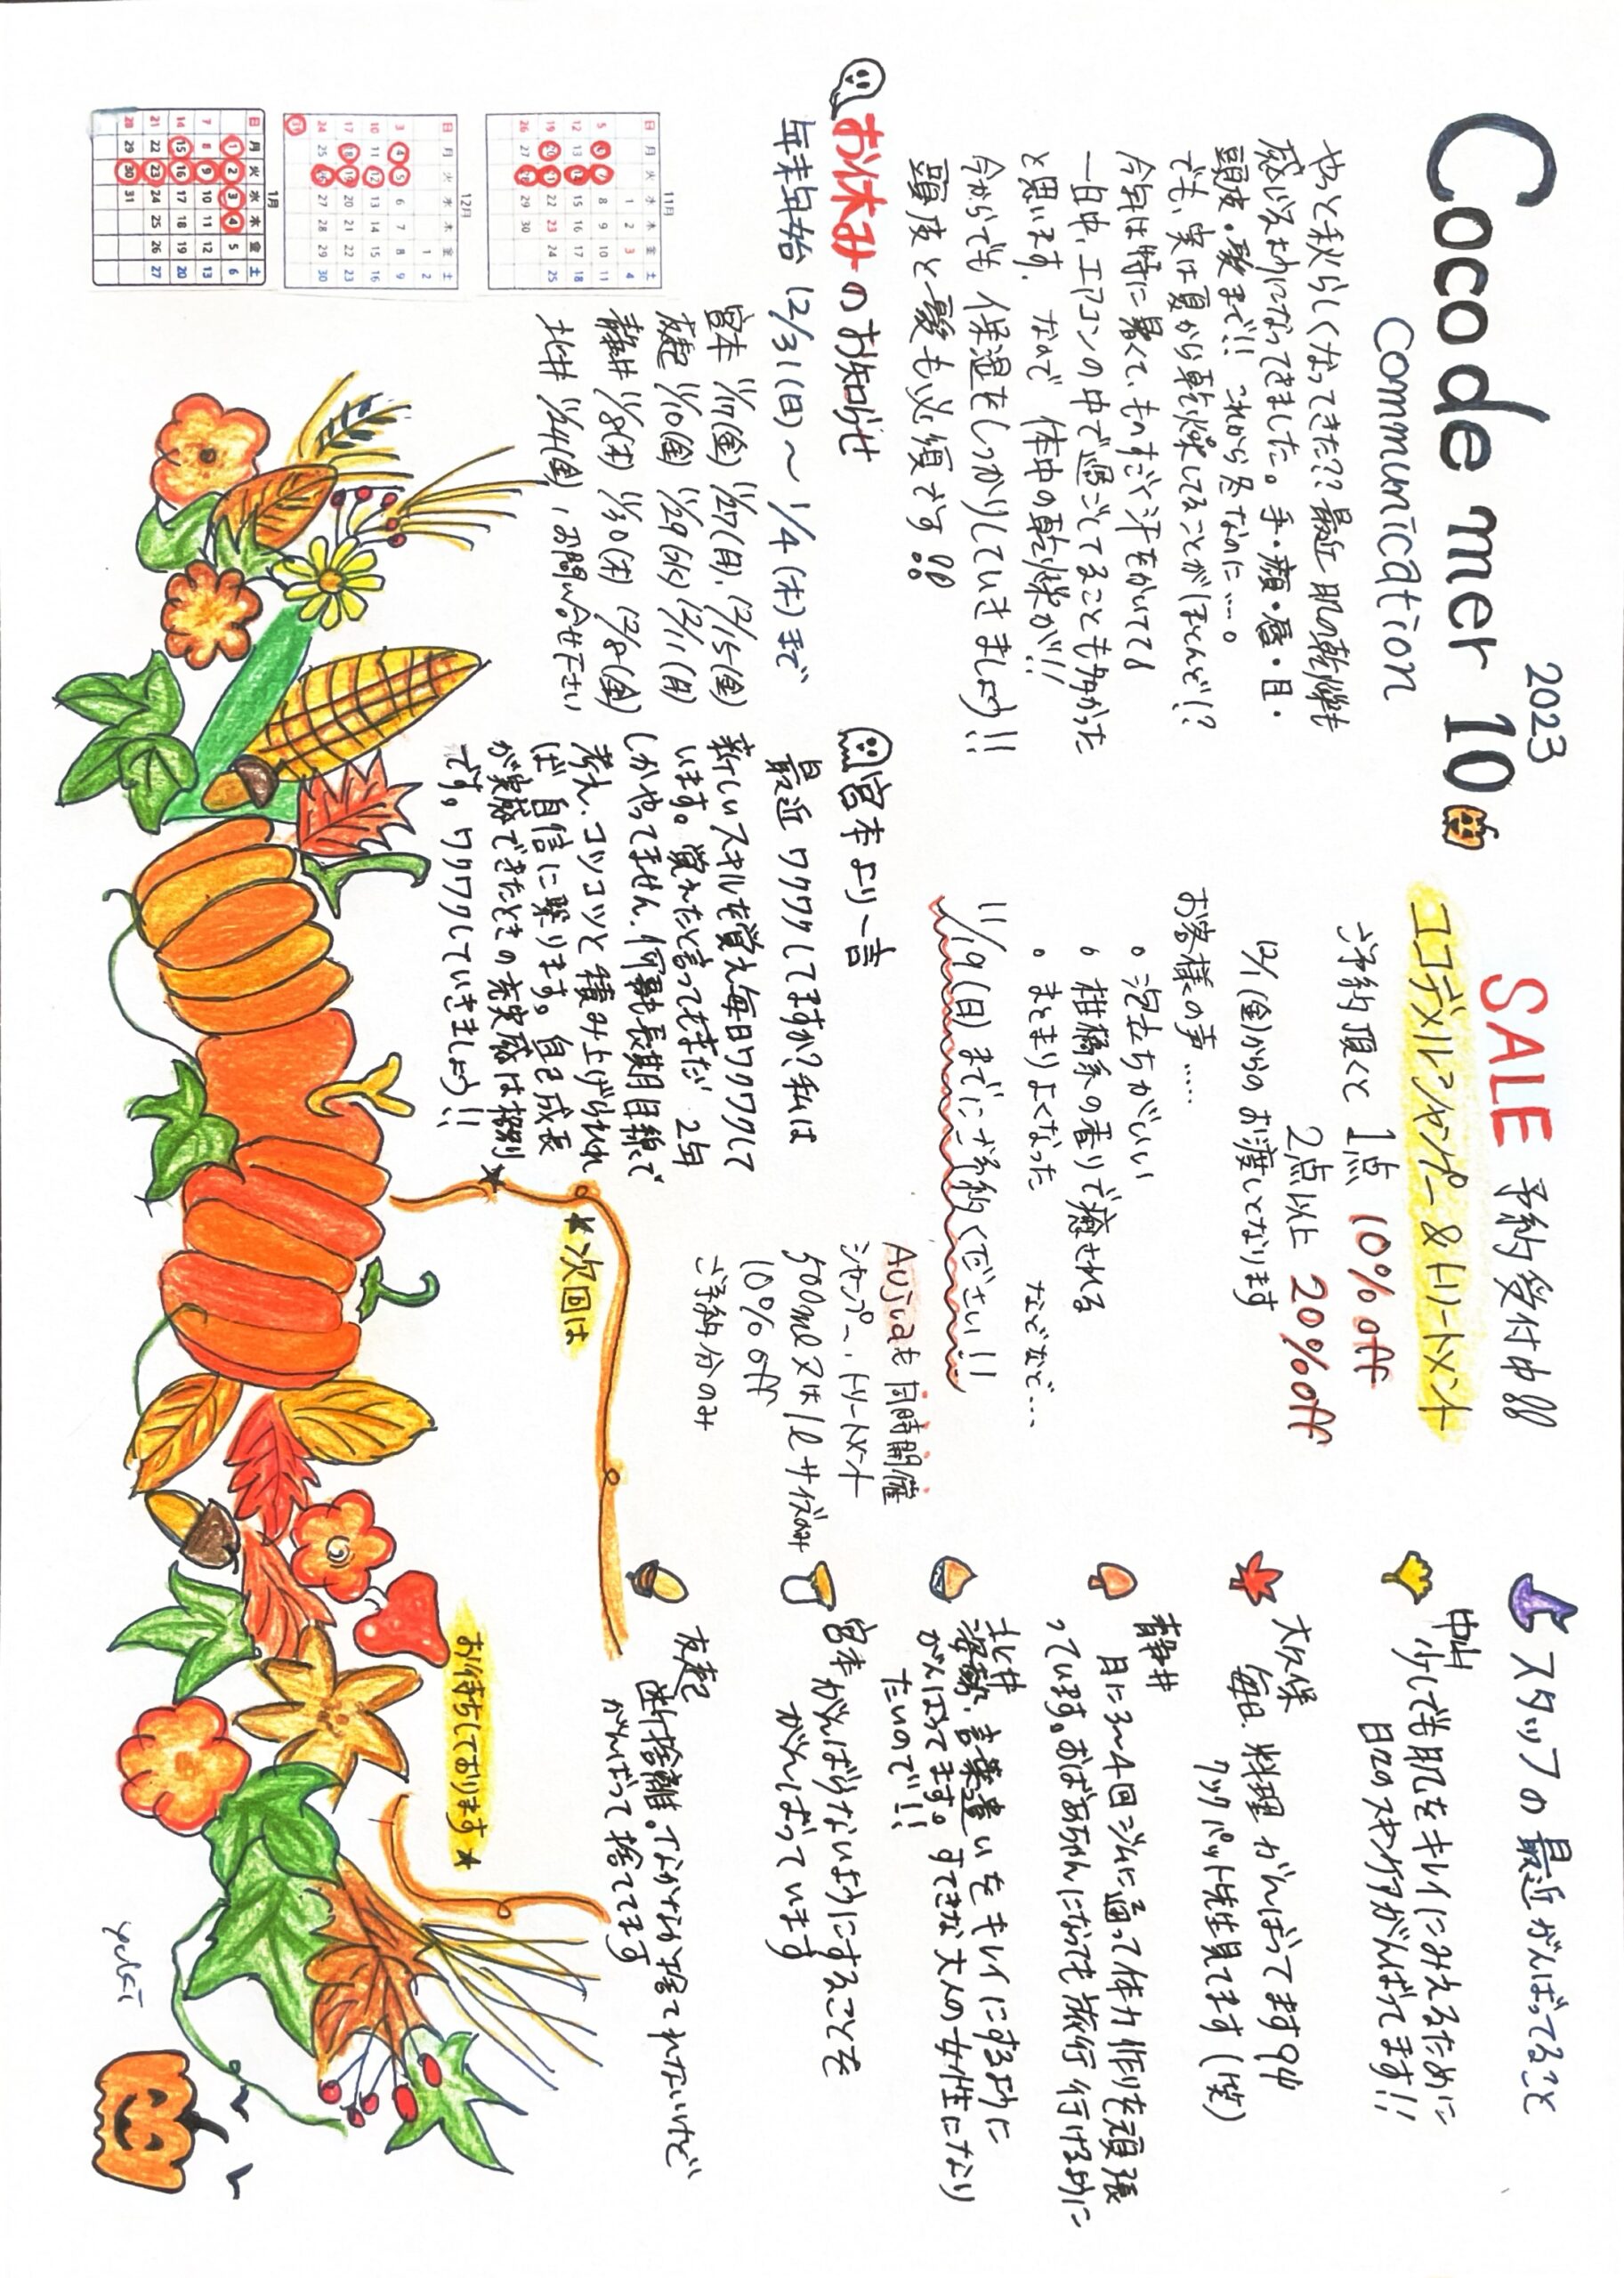 Cocode mer 10
2023
communication
やっと秋らしくなってきた?? 最近 肌の乾燥も
感じるようになってきました。手・顔・唇・目・
頭皮・髪まで!! これから冬なのに……。
でも、実は夏から乾燥してることがほとんど!?
今年は特に暑くて、ものすごく汗をかいてる
一日中、エアコンの中で過ごしてることも多かった
と思います。なので 体中の乾燥が!!
今からでも 保湿をしっかりしていきましょう!!
頭皮と髪も必須です!!
お休みのお知らせ
年末年始 12/31(日)～1/4(木)まで
宮本 11/17(金) 11/27(月)、12/15(金)
友起 11/10(金) 11/29(水) 12/11(月)
静井 11/8(水) 11/30(木) 12/8(金)
北井 11/24(金)、お問い合せ下さい
11月
日 月 火 水 木 金 土
1 2 3 4
5 6 7 8 9 10 11
12 13 14 15 16 17 18
19 20 21 22 23 24 25
26 27 28 29 30
12月
日 月 火 水 木 金 土
1 2
3 4 5 6 7 8 9
10 11 12 13 14 15 16
17 18 19 20 21 22 23
24 25 26 27 28 29 30
31
1月
日 月 火 水 木 金 土
1 2 3 4 5 6
7 8 9 10 11 12 13
14 15 16 17 18 19 20
21 22 23 24 25 26 27
28 29 30 31
宮本より一言
最近 ワクワクしてますか? 私は
新しいスキルを覚え毎日ワクワクして
います。覚えたと言ってもまだ 2年
しかやってません、何事も長期目線で
考え、コツコツと積み上げられれ
ば 自信に繋ります。自己成長
が実感できたときの充実感は格別
です。ワクワクしていきましょう!!
SALE 予約受付中!!!
ココデメルシャンプー&トリートメント
ご予約頂くと 1点 10%off
2点以上 20%off
12/1(金)からの お渡しとなります
お客様の声……
。泡立ちがいい
。柑橘系の香りで癒される
。まとまりよくなった などなど…
11/19(日)までにご予約ください!!
Aujuaも同時開催
シャンプー、トリートメント
500ml又は1lサイズのみ
10%off
ご予約分のみ
★次回は
お待ちしております★
スタッフの最近がんばってること
中村
少しでも肌をキレイにみえるために
日々のスキンケアがんばってます!!
大久保
毎日、料理 がんばってます
クックパッド先生見てます(笑)
静井
月に3～4回ジムに通って体力作りを頑張
っています。おばあちゃんになっても旅行 行けるように
北井
姿勢、言葉遣いをキレイにするように
がんばってます。すてきな大人の女性になり
たいので!!
宮本
がんばらないようにすることを
がんばっています
友起
断捨離。なかなか捨てれないけど
がんばって捨ててます
yuki